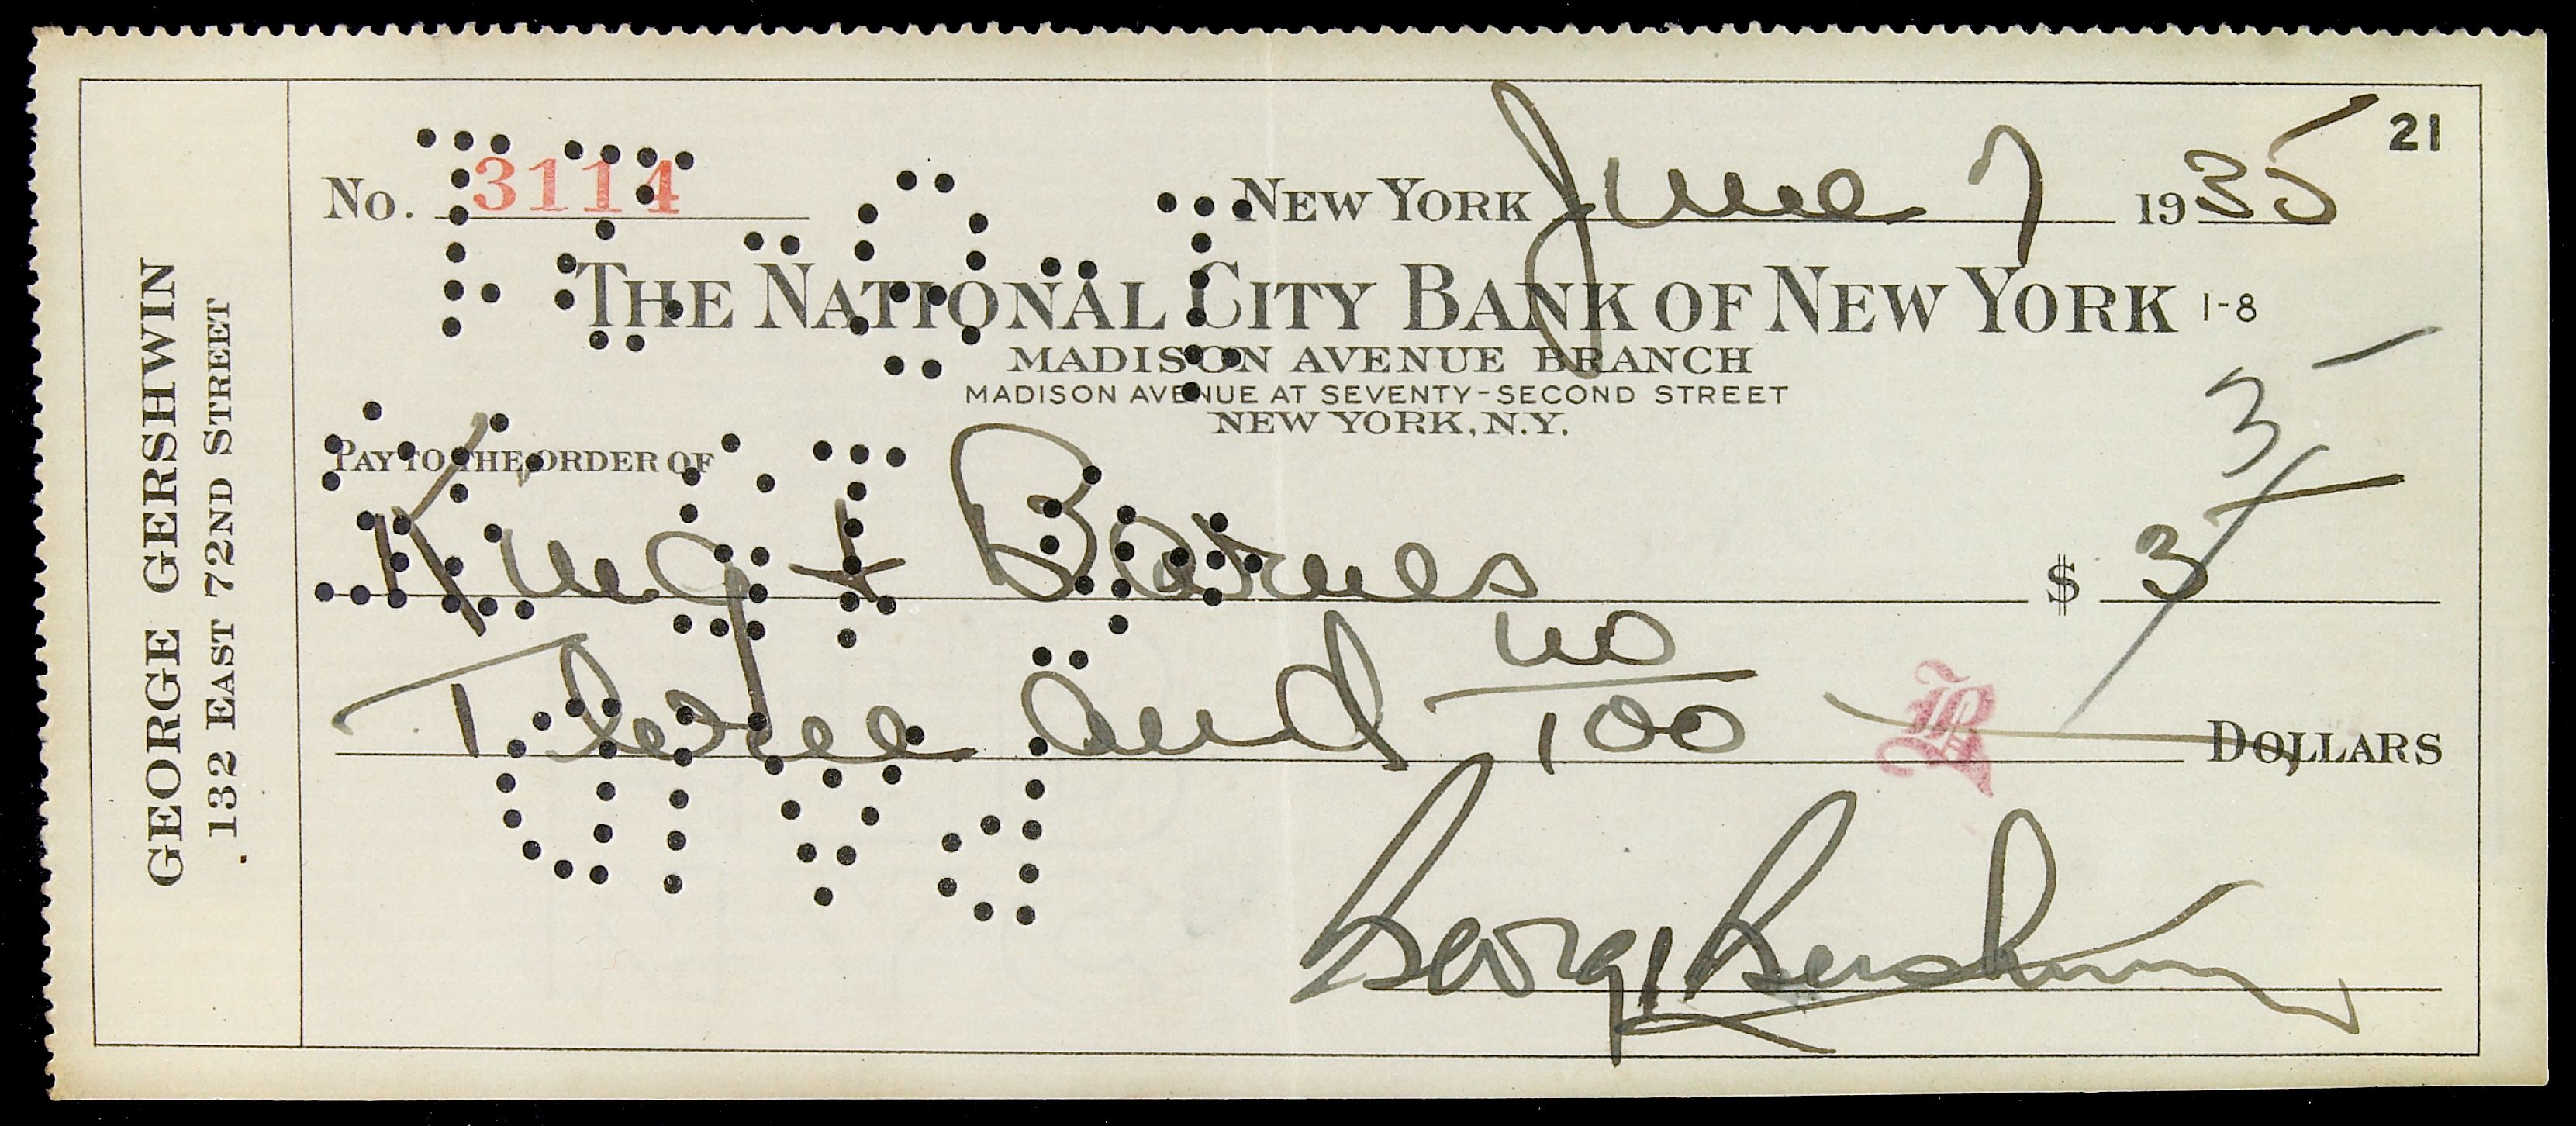 GEORGE GERSHWIN
132 EAST 72ND STREET
21
No. 3114 NEW YORK June 7 1935
THE NATIONAL CITY BANK OF NEW YORK 1-8
MADISON AVENUE BRANCH
MADISON AVENUE AT SEVENTY-SECOND STREET
NEW YORK, N.Y.
PAY TO THE ORDER OF
King & Barnes $ 3
Three and no/100 DOLLARS
George Gershwin